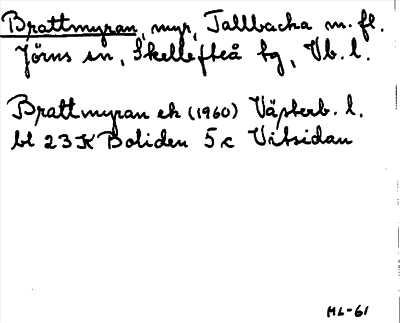 Brattmyran, myr, Tallbacka m. fl.
Jörns sn, Skellefteå tg, Vb. l.
Brattmyran ek (1960) Västerb. l.
bl 23 K Boliden 5 c Vitsidan
ML-61